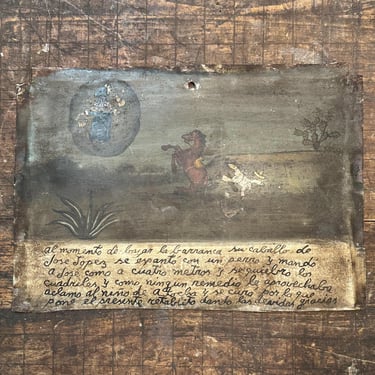 al momento de bajar la barranca su caballo de
Jose Lopes se espanto con un perro y mando
a Jose como a cuatro metros y se quiebro los
cuadriles y como ningun remedio le aprovechaba
aclamo al niño de atocha y se curo por lo que
pone el presente retablito dando las devidas gracias